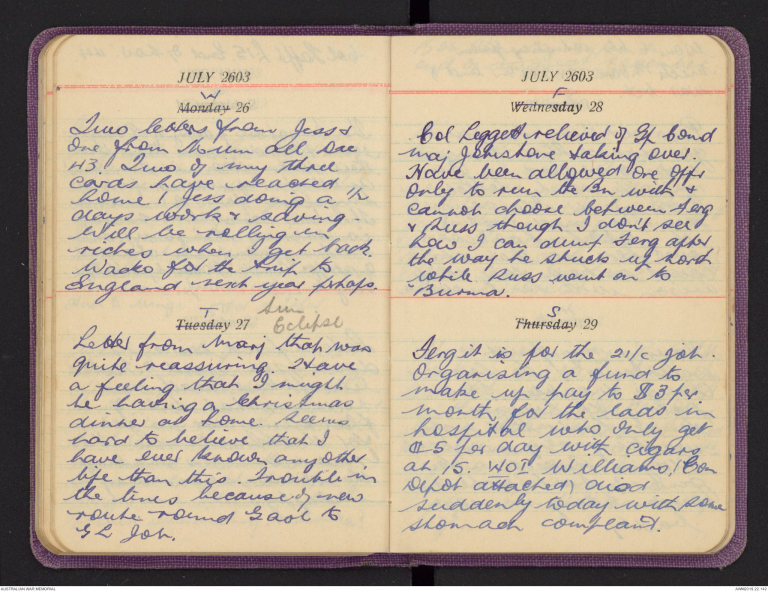 JULY 2603
W
Monday 26
Two letters from Jess &
one from Mum all Dec
43. Two of my three
cards have reached
home! Jess doing a 1/2
days work & saving.
Will be rolling in
riches when I get back.
Wacko for the trip to
England next year p'haps.
T
Tuesday 27
Sun
Eclipse
Letter from Marj that was
quite reassuring. Have
a feeling that I might
be having a Christmas
dinner at home. Seems
hard to believe that I
have ever known any other
life than this. Trouble in
the lines because of new
route round Gaol to
GL Job.
JULY 2603
F
Wednesday 28
Col Leggett relieved of Gp Comd
Maj Johnstone taking over.
Have been allowed one Offr
only to run the Bn with &
cannot choose between Ferg
& Russ though I don't see
how I can dump Ferg after
the way he stuck up North
while Russ went on to
"Burma.
S
Thursday 29
Ferg it is for the 2i/c job.
Organising a fund to
make up pay to $3 per
month for the lads in
hospital who only get
¢5 per day with cigars
at 15. WOI Williams, (Gen
Depot attached) died
suddenly today with some
stomach complaint.
AUSTRALIAN WAR MEMORIAL